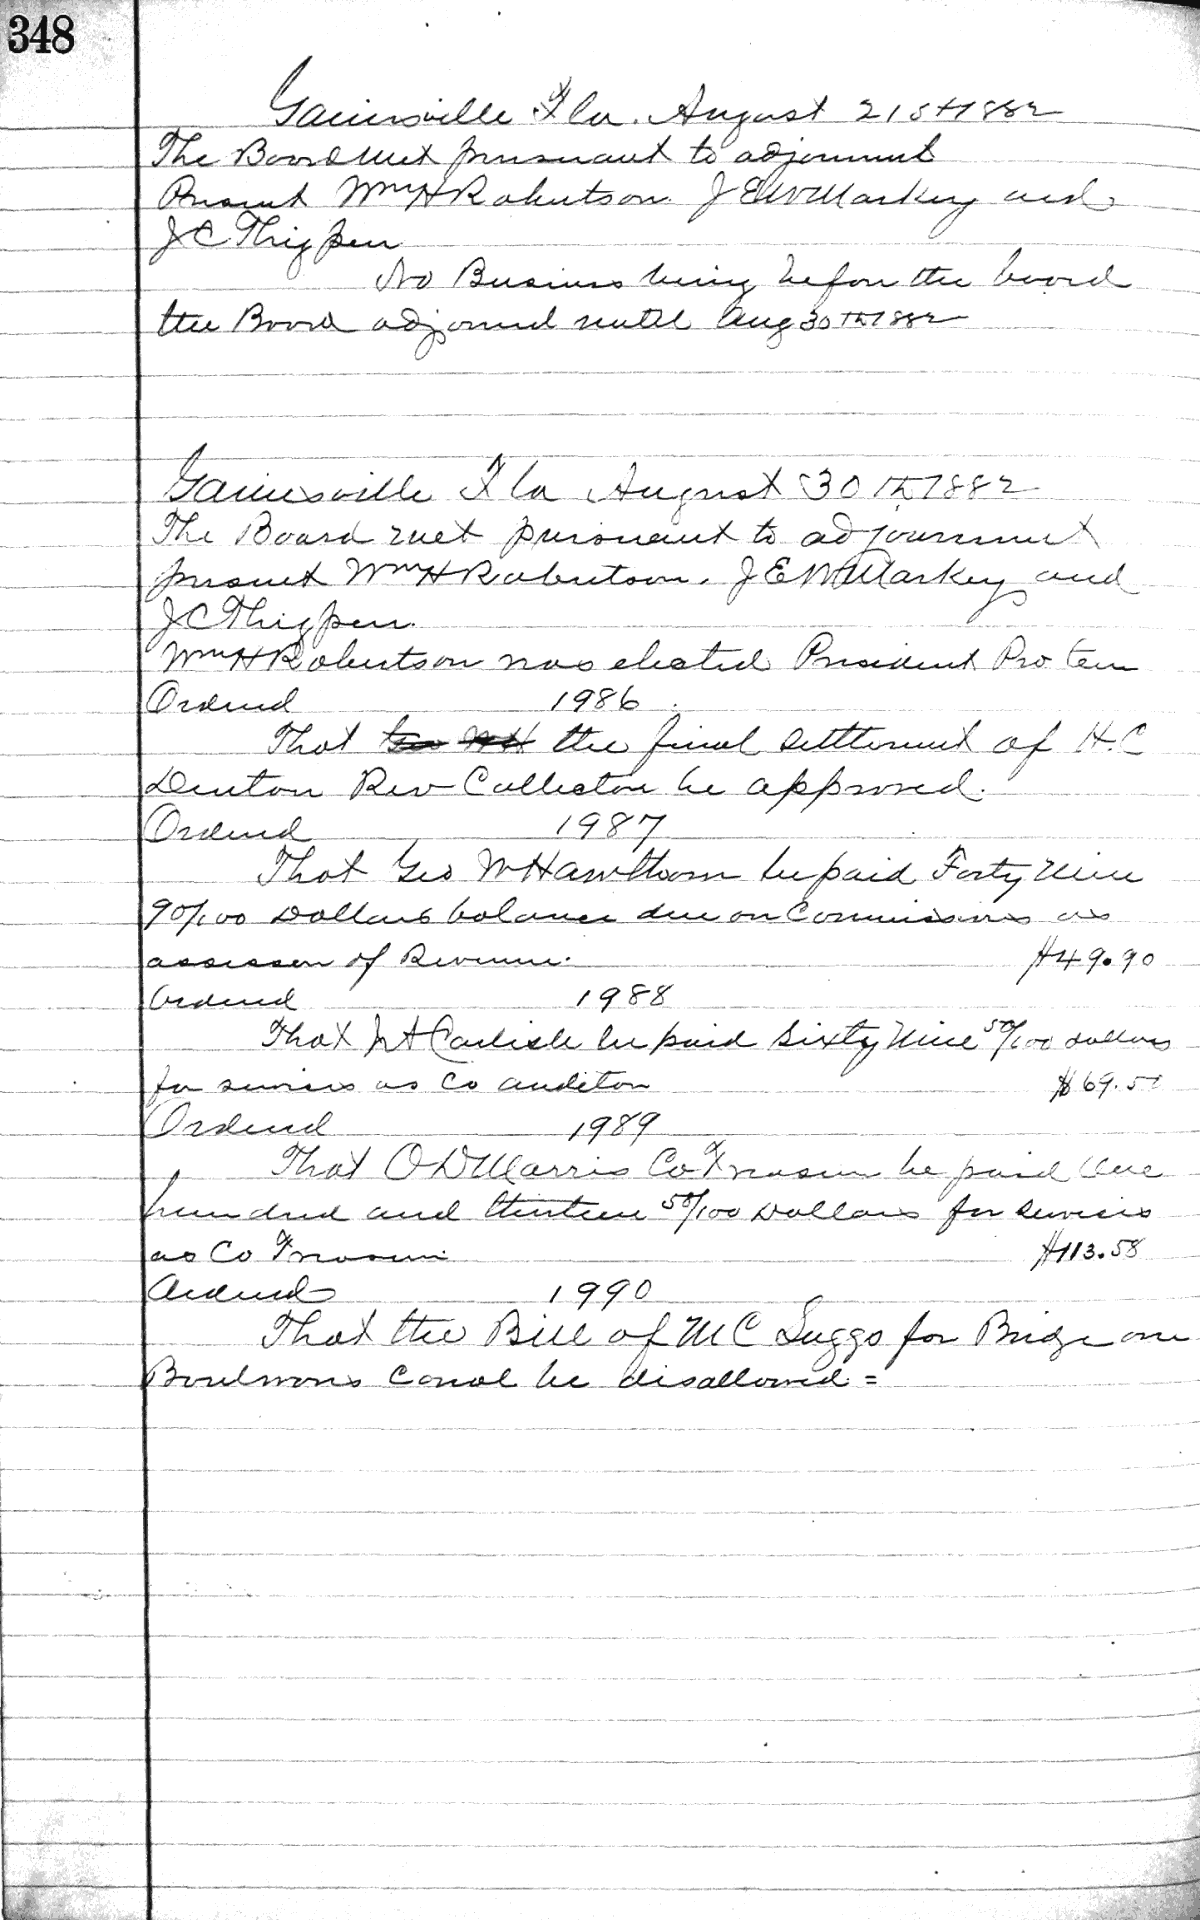 348
Gainesville Fla. August 21st 1882
The Board met pursuant to adjournment
Present Wm H Robertson J E W Markey and
J C Thigpen
No Business being before the board
the Board adjorned until Aug 30th 1882
Gainesville Fla August 30th 1882
The Board met pursuant to adjournment
present Wm H Robertson. J E W Markey and
J C Thigpen.
Wm H Robertson was elected President Pro tem
Ordered 1986
That Geo W H the final settlement of H. C
Denton Rev Collector be approved.
Ordered 1987
That Geo W Hawthorn be paid Forty Nine
90/100 Dollars balance due on Commissions as
assessor of Revenue. $49.90
Ordered 1988
That J A Carlisle be paid Sixty Nine 50/100 dollars
for services as Co auditor $69.50
Ordered 1989
That O D Morris Co Treasurer be paid One
hundred and thirteen 58/100 Dollars for services
as Co Treasurer $113.58
Ordered 1990
That the Bill of M C Suggs for Bridge on
Boulwares Canal be disallowed =